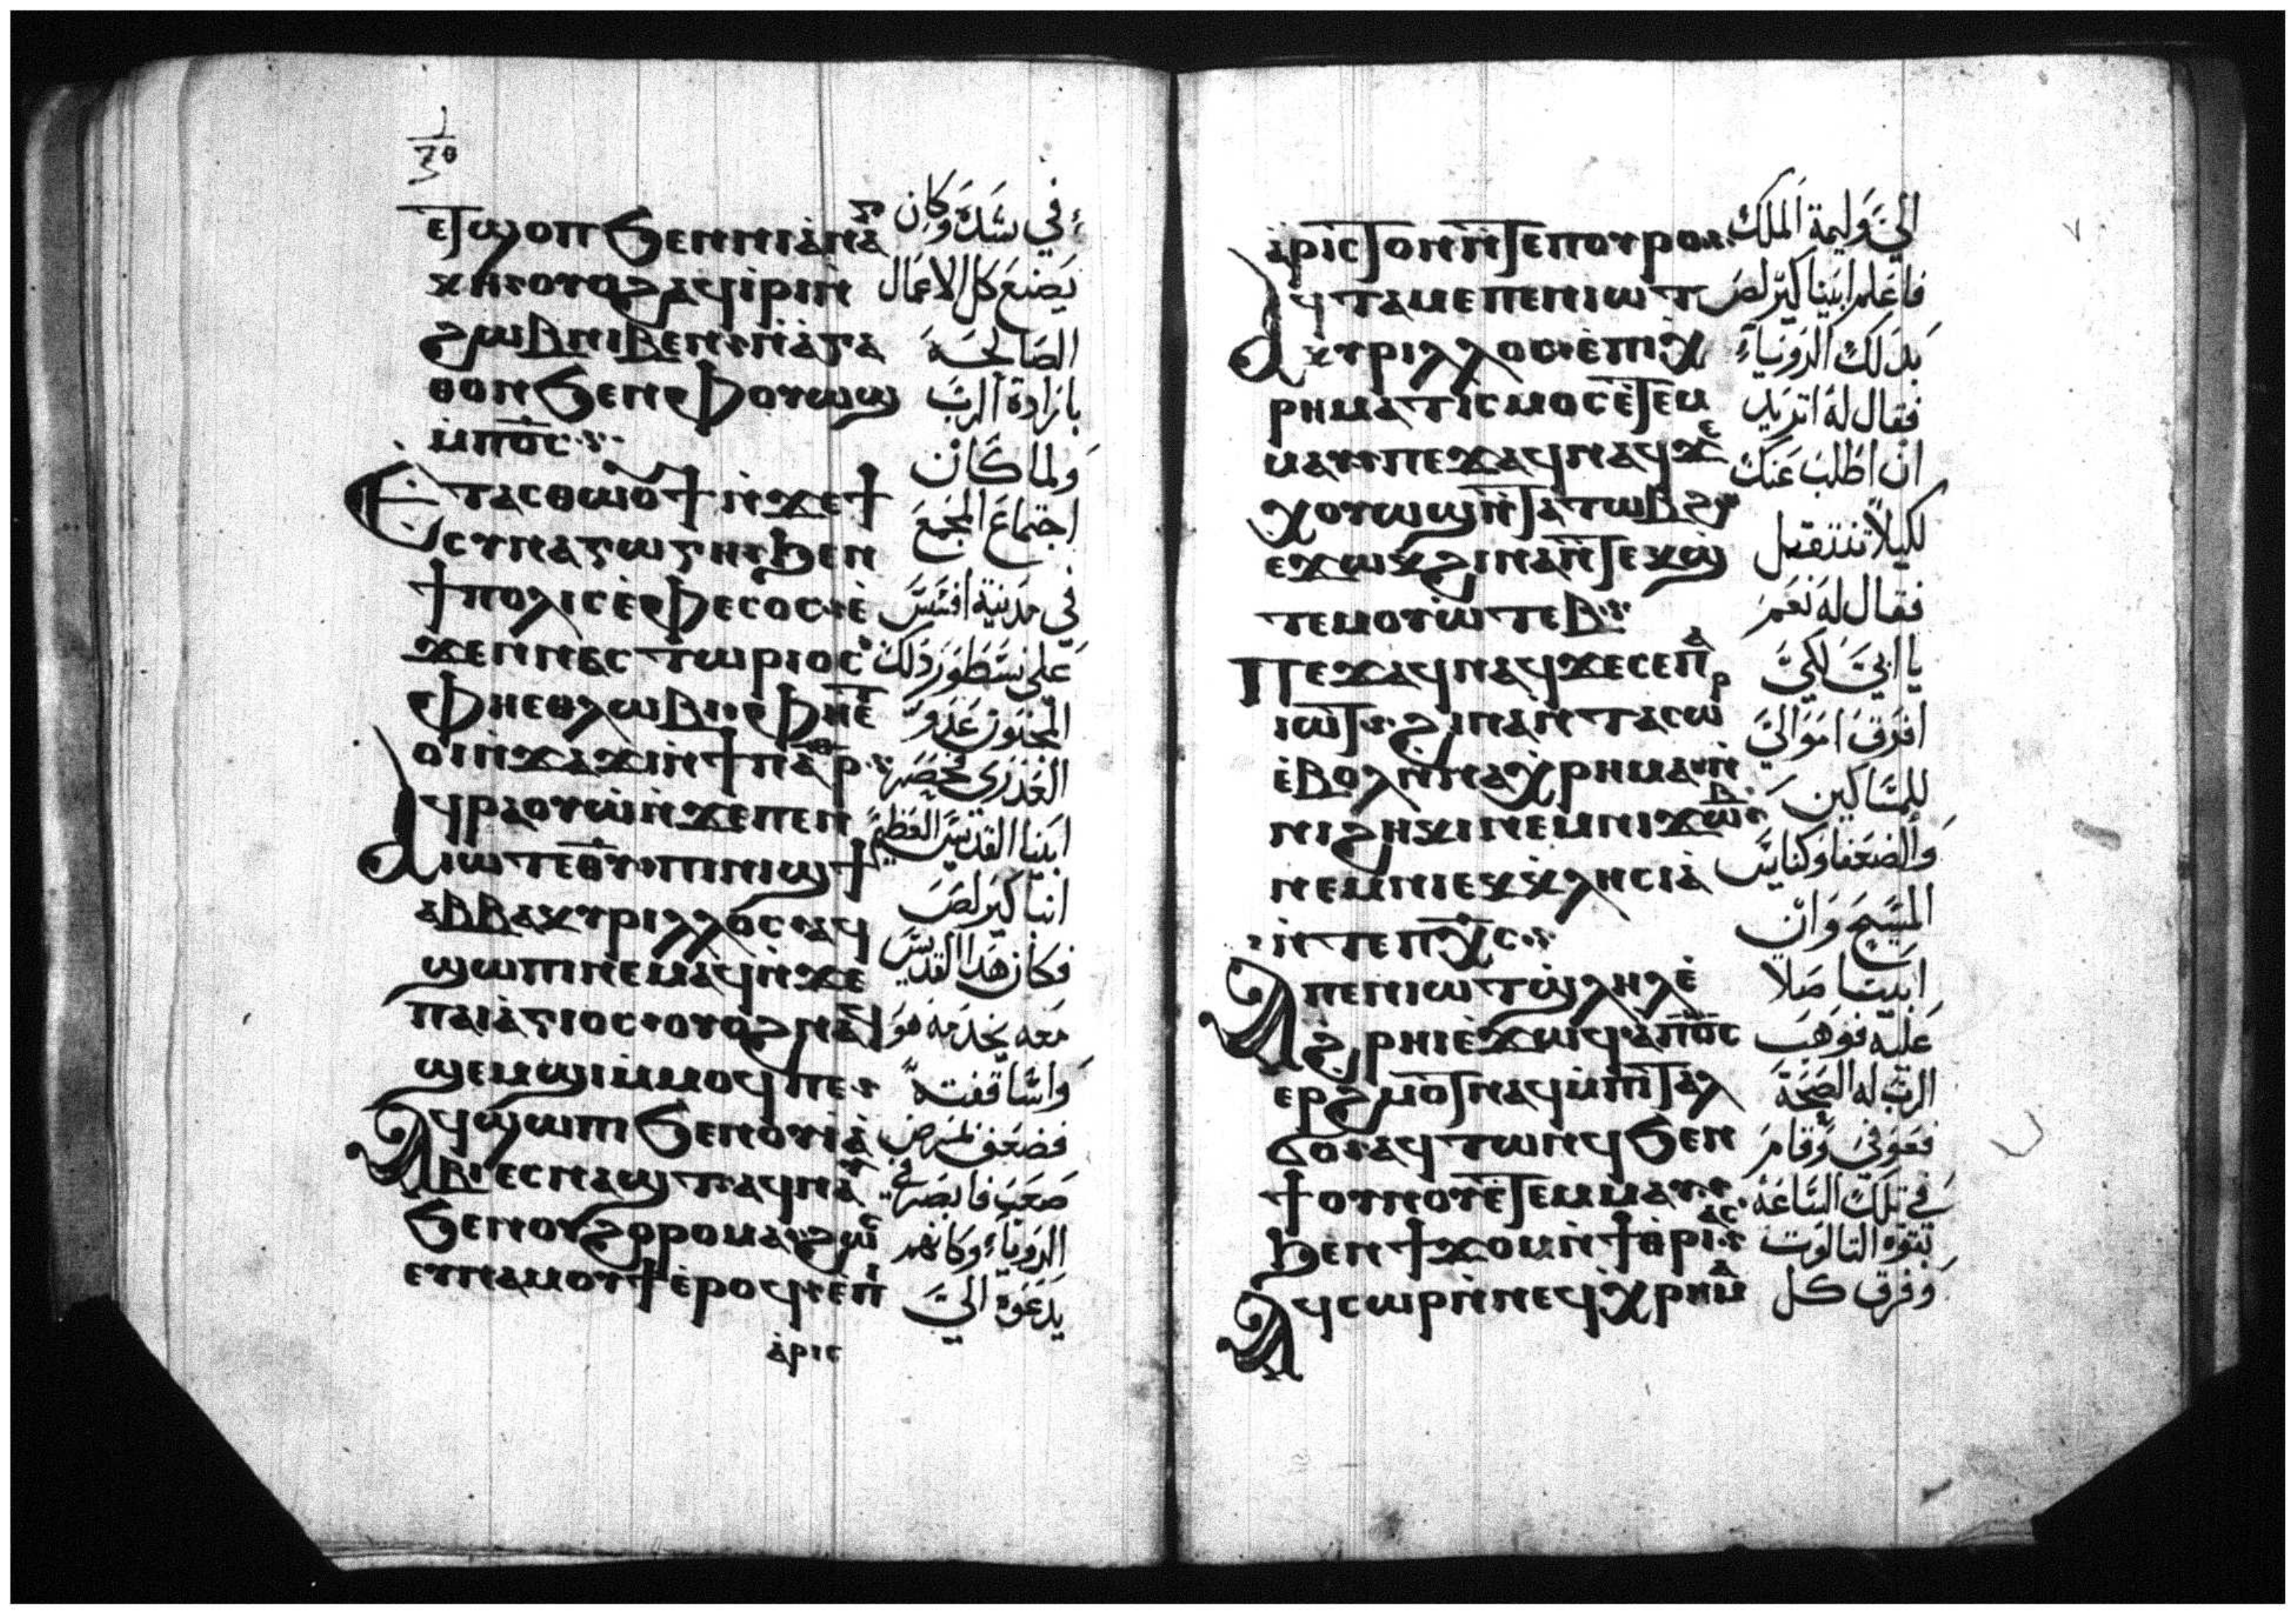 ⲉⲧϣⲟⲡ ϧⲉⲛ ⲛⲓⲁⲛⲁⲛ
ⲭⲏ ⲟⲩⲟϩ ⲁϥⲓⲣⲓ ⲛ̀
ϩⲱⲃ ⲛⲓⲃⲉⲛ ⲛ̀ⲁⲅⲁ
ⲑⲟⲛ ϧⲉⲛ ⲫⲟⲩⲱϣ
ⲙ̀ⲡⲟ̅ⲥ̅
Ⲉⲧⲁⲥⲑⲱⲟⲩϯ ⲛ̀ϫⲉ ϯ
ⲥⲩⲛⲁⲅⲱⲅⲏ ϧⲉⲛ
ϯⲡⲟⲗⲓⲥ ⲉ̀ⲫⲉⲥⲟⲥ ⲉ̀
ϫⲉⲛ ⲛⲉⲥⲧⲱⲣⲓⲟⲥ
ⲫⲏⲉⲑⲗⲱⲃⲓ ⲫⲏⲉ̅ⲧ
ⲟⲓ ⲛ̀ϫⲁϫⲓ ⲛ̀ϯⲡⲁⲣⲑ
Ⲁϥⲣⲁⲟⲩⲱ ⲛ̀ϫⲉ ⲡⲉⲛ
ⲓⲱⲧ ⲉ̅ⲑ̅ⲩ̅ ⲡⲓⲛⲓϣϯ
ⲁⲃⲃⲁ ⲕⲩⲣⲓⲗⲗⲟⲥ ⲁϥ
ϣⲱⲡⲓ ⲛⲉⲙⲁϥ ⲛ̀ϫⲉ
ⲡⲁⲓⲁ̀ⲅⲓⲟⲥ ⲟⲩⲟϩ ⲛⲁϥ
ϣⲉⲙϣⲓ ⲙ̀ⲙⲟϥ ⲡⲉ
Ⲁϥϣⲱⲡⲓ ϧⲉⲛ ⲟⲩⲓⲁ
ⲃⲓ ⲉⲥⲛⲁϣⲧ ⲁϥⲛⲁⲩ
ϧⲉⲛ ⲟⲩϩⲟⲣⲟⲙⲁ ϩⲱⲥ
ⲉⲩⲛⲁⲙⲟⲩϯ ⲉ̀ⲣⲟϥ ⲉ̀ⲡⲓ
ⲁ̀ⲣⲓⲥ
في شدة وكان
يصنع كل الاعمال
الصالحة
بارادة الرب
ولما كان
اجتماع المجمع
في مدينة افسس
على نسطور ذلك
المجنون عدو
ابينا القديس العظيم
انبا كيرلص
فكان هذا القديس
معه يخدمه هو
واساقفته
فضعف لمرض
صعب فابصر في
الرويا وكانهم
يدعوه الي
ⲁ̀ⲣⲓⲥⲧⲟⲛ ⲛ̀ⲧⲉ ⲡⲟⲩⲣⲟ
Ⲁϥⲧⲁⲙⲉ ⲡⲉⲛⲓⲱⲧ
ⲕⲩⲣⲓⲗⲗⲟⲥ ⲉ̀ⲡⲓⲭ
ⲣⲏⲙⲁⲧⲓⲥⲙⲟⲥ ⲉ̀ⲧⲉⲙ
ⲙⲁⲩ ⲡⲉϫⲁϥ ⲛⲁϥ ϫⲉ
ⲭⲟⲩⲱϣ ⲛ̀ⲧⲁⲧⲱⲃϩ
ⲉϫⲱⲕ ϩⲓⲛⲁ ⲛ̀ⲧⲉⲕϣ
ⲧⲉⲙⲟⲩⲱⲧⲉⲃ
Ⲡⲉϫⲁϥ ⲛⲁϥ ϫⲉ ⲥⲉ ⲡⲁ
ⲓⲱⲧ ϩⲓⲛⲁ ⲛ̀ⲧⲁⲥⲱⲣ
ⲉ̀ⲃⲟⲗ ⲛ̀ⲛⲁⲭⲣⲏⲙⲁ ⲛ̀
ⲛⲓϩⲏⲕⲓ ⲛⲉⲙ ⲛⲓϫⲱⲃ
ⲛⲉⲙ ⲛⲓⲉⲕⲕⲗⲏⲥⲓⲁ
ⲛ̀ⲧⲉ ⲡⲭ̅ⲥ̅
Ⲁ ⲡⲉⲛⲓⲱⲧ ϣⲗⲏⲗ ⲉ̀
ϩⲣⲏⲓ ⲉ̀ϫⲱϥ ⲁ̀ ⲡⲟ̅ⲥ̅
ⲉⲣϩⲙⲟⲧ ⲛⲁϥ ⲙ̀ⲡⲓⲧⲁⲗ
ϭⲟ ⲁϥⲧⲱⲛϥ ϧⲉⲛ
ϯⲟⲩⲛⲟⲩ ⲉ̀ⲧⲉⲙⲙⲁⲩ
ϧⲉⲛ ϯϫⲟⲙ ⲛ̀ϯⲧⲣⲓⲁⲥ
Ⲁϥⲥⲱⲣ ⲛ̀ⲛⲉϥⲭⲣⲏⲙⲁ
الي وليمة الملك
فاعلم ابينا كيرلص
بذلك الرويا
فقال له اتريد
ان اطلب عنك
لكيلا تنتقل
فقال له نعم
يا ابي لكي
افرق اموالي
للمساكين
والضعفا وكنايس
المسيح وان
ابينا صلا
عليه فوهب
الرب له الصحة
فعوفي وقام
في تلك الساعة
بقوة التالوت
وفرق كل